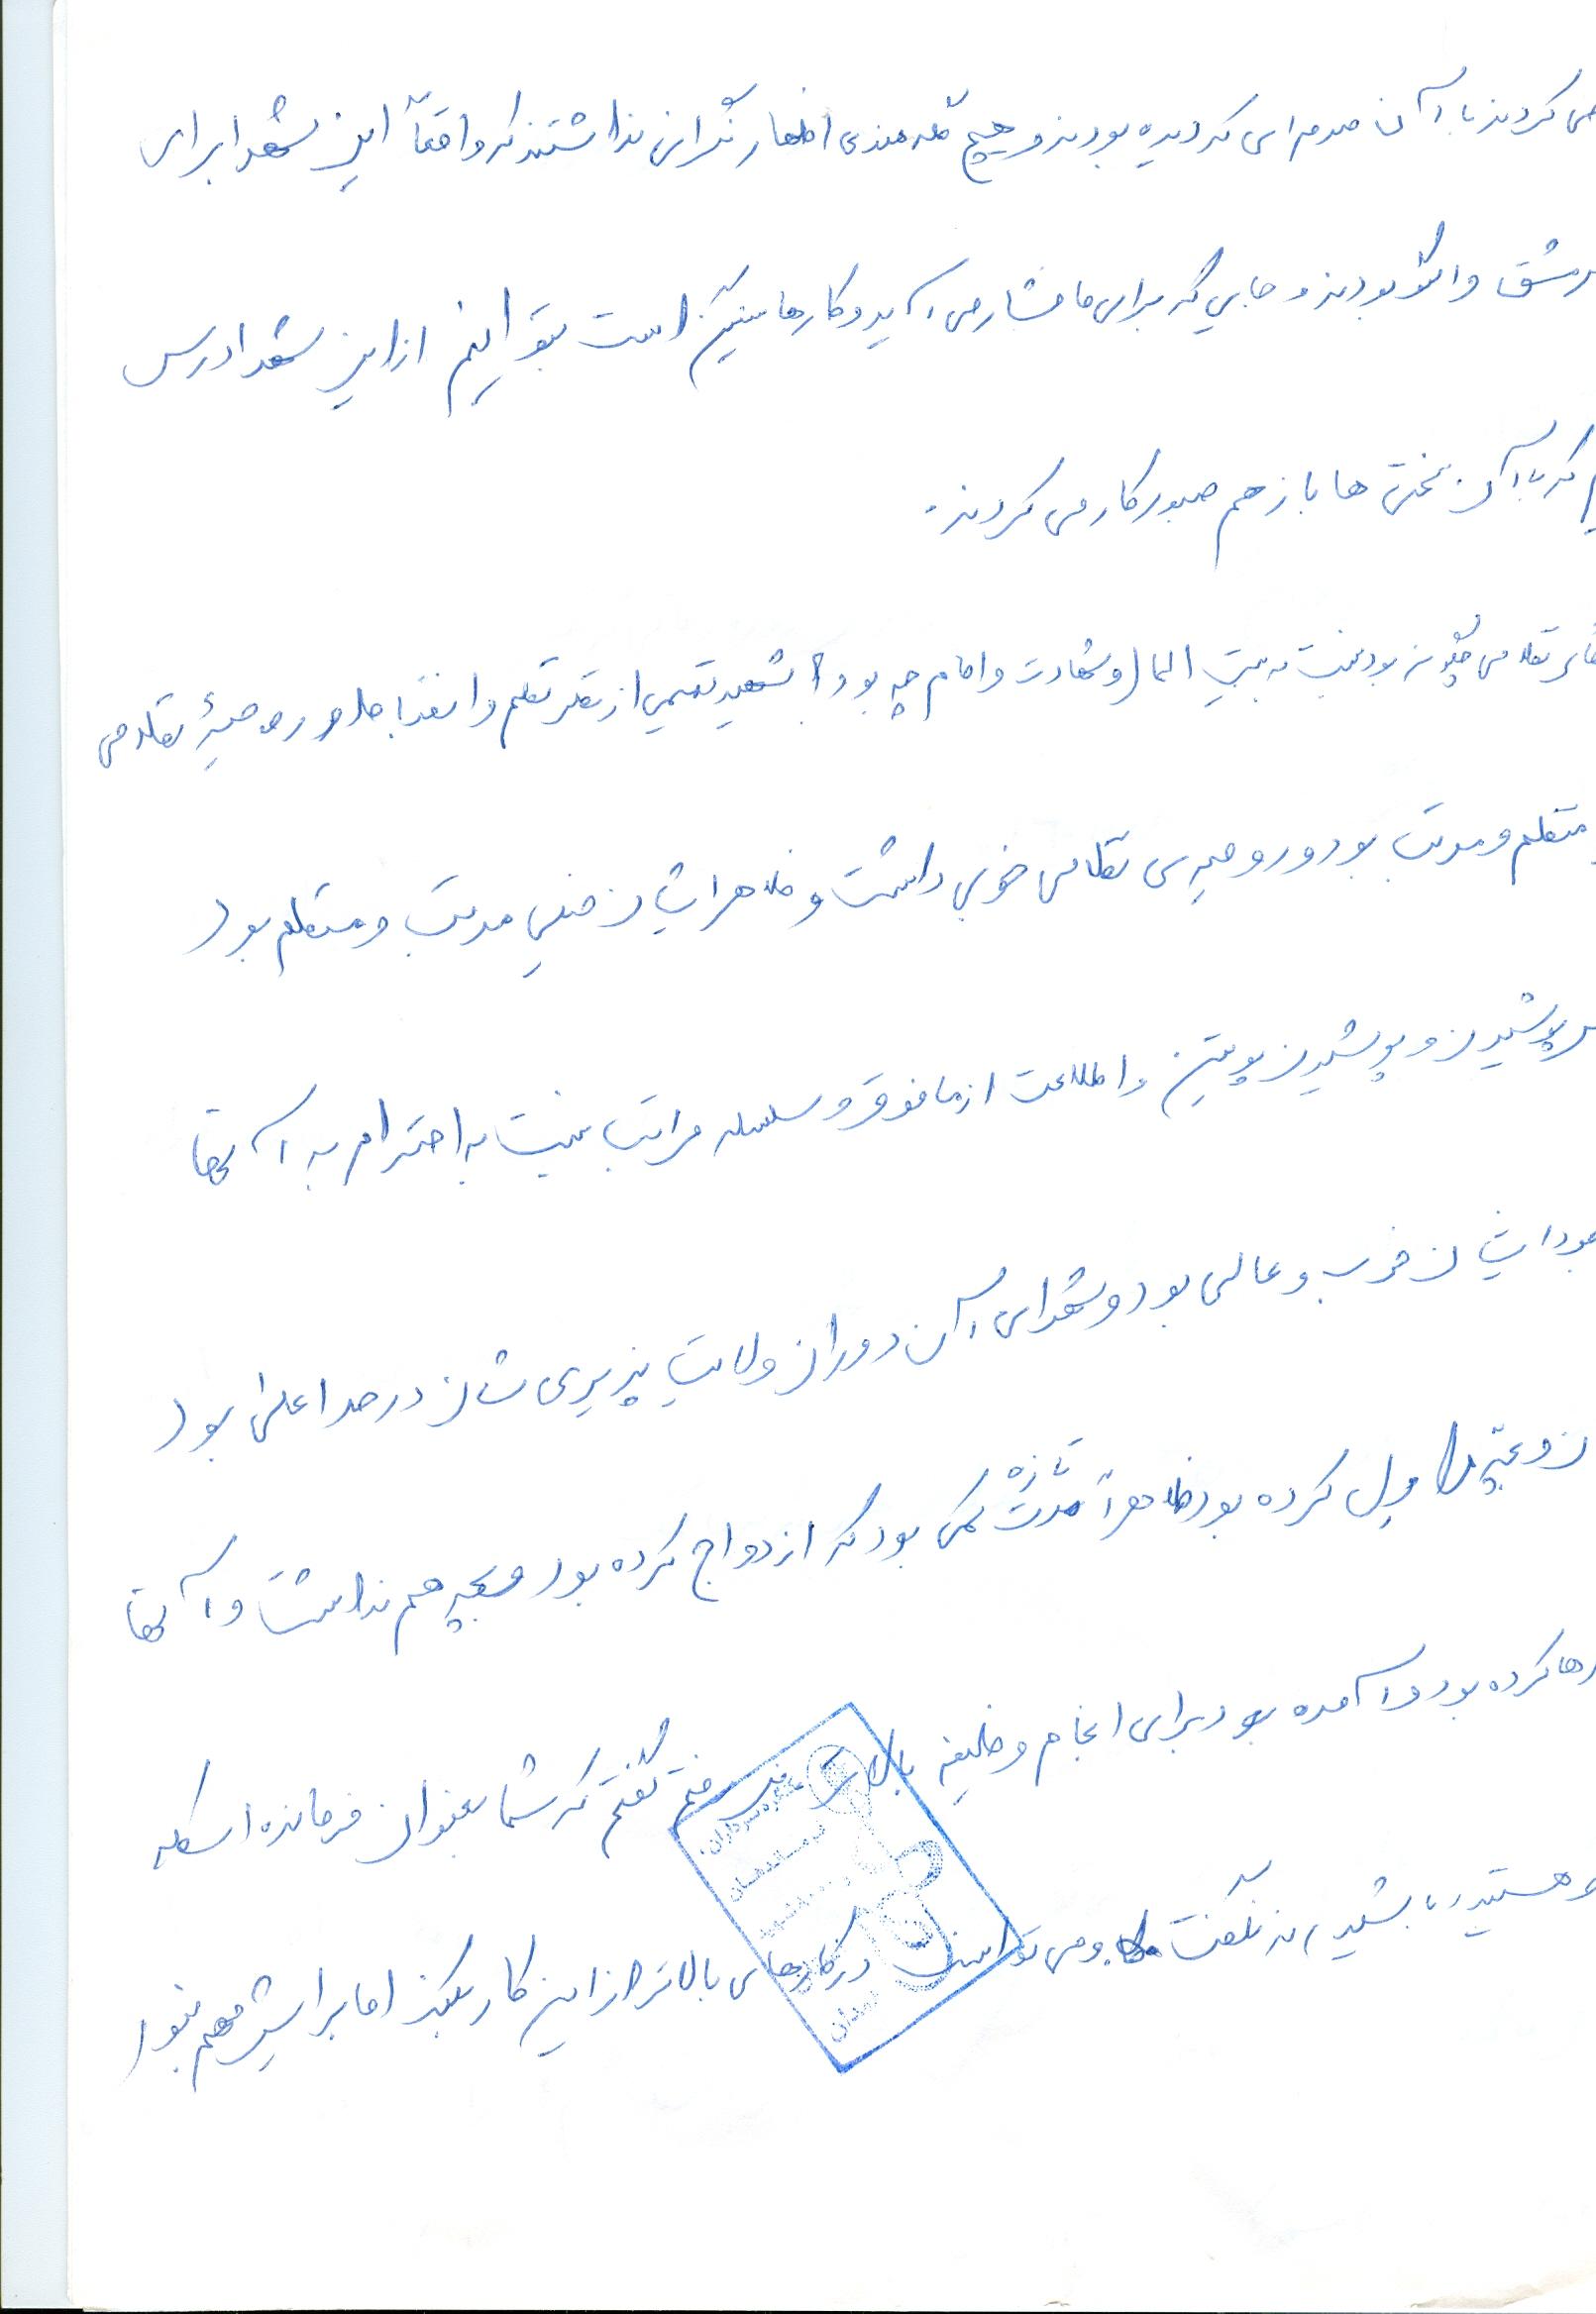 می کردند با آن صدمه ای که دیده بودند و هیچ گله مندی اظهار نگرانی نداشتند که واقعاً این شهدا برای
سرمشق والگو بودند و جایی که برای ما فشار می آید و کارها سنگین است بتوانیم از این شهدا درس
که با آن سختی ها باز هم صبور کار می کردند.
نظامی چگونه بود نسبت به بیت المال و شهادت و امام چه بود؟ شهید نعیمی از نظر نظم و انضباط و روحیهٔ نظامی
منظم و مرتب بود و روحیه ی نظامی خوبی داشت و ظاهر ایشان خیلی مرتب و منظم بود
پوشیدن و پوشیدن پوتین و اطاعت از مافوق و سلسله مراتب نسبت به احترام به آنها
بود ایشان خوب و عالی بود و شهدای آن دوران ولایت پذیری شان در حد اعلی بود
زن و بچه را ول کرده بود ظاهراً تازه مدت کمی بود که ازدواج کرده بود و بچه هم نداشت و آنها
رها کرده بود و آمده بود برای انجام وظیفه بالاتر رفتم گفتم که شما بعنوان فرمانده اسکله
هستید باشید، نه نگفت و می توانست در کارهای بالاتر از این کار بکند اما برایش مهم نبود
سرداران